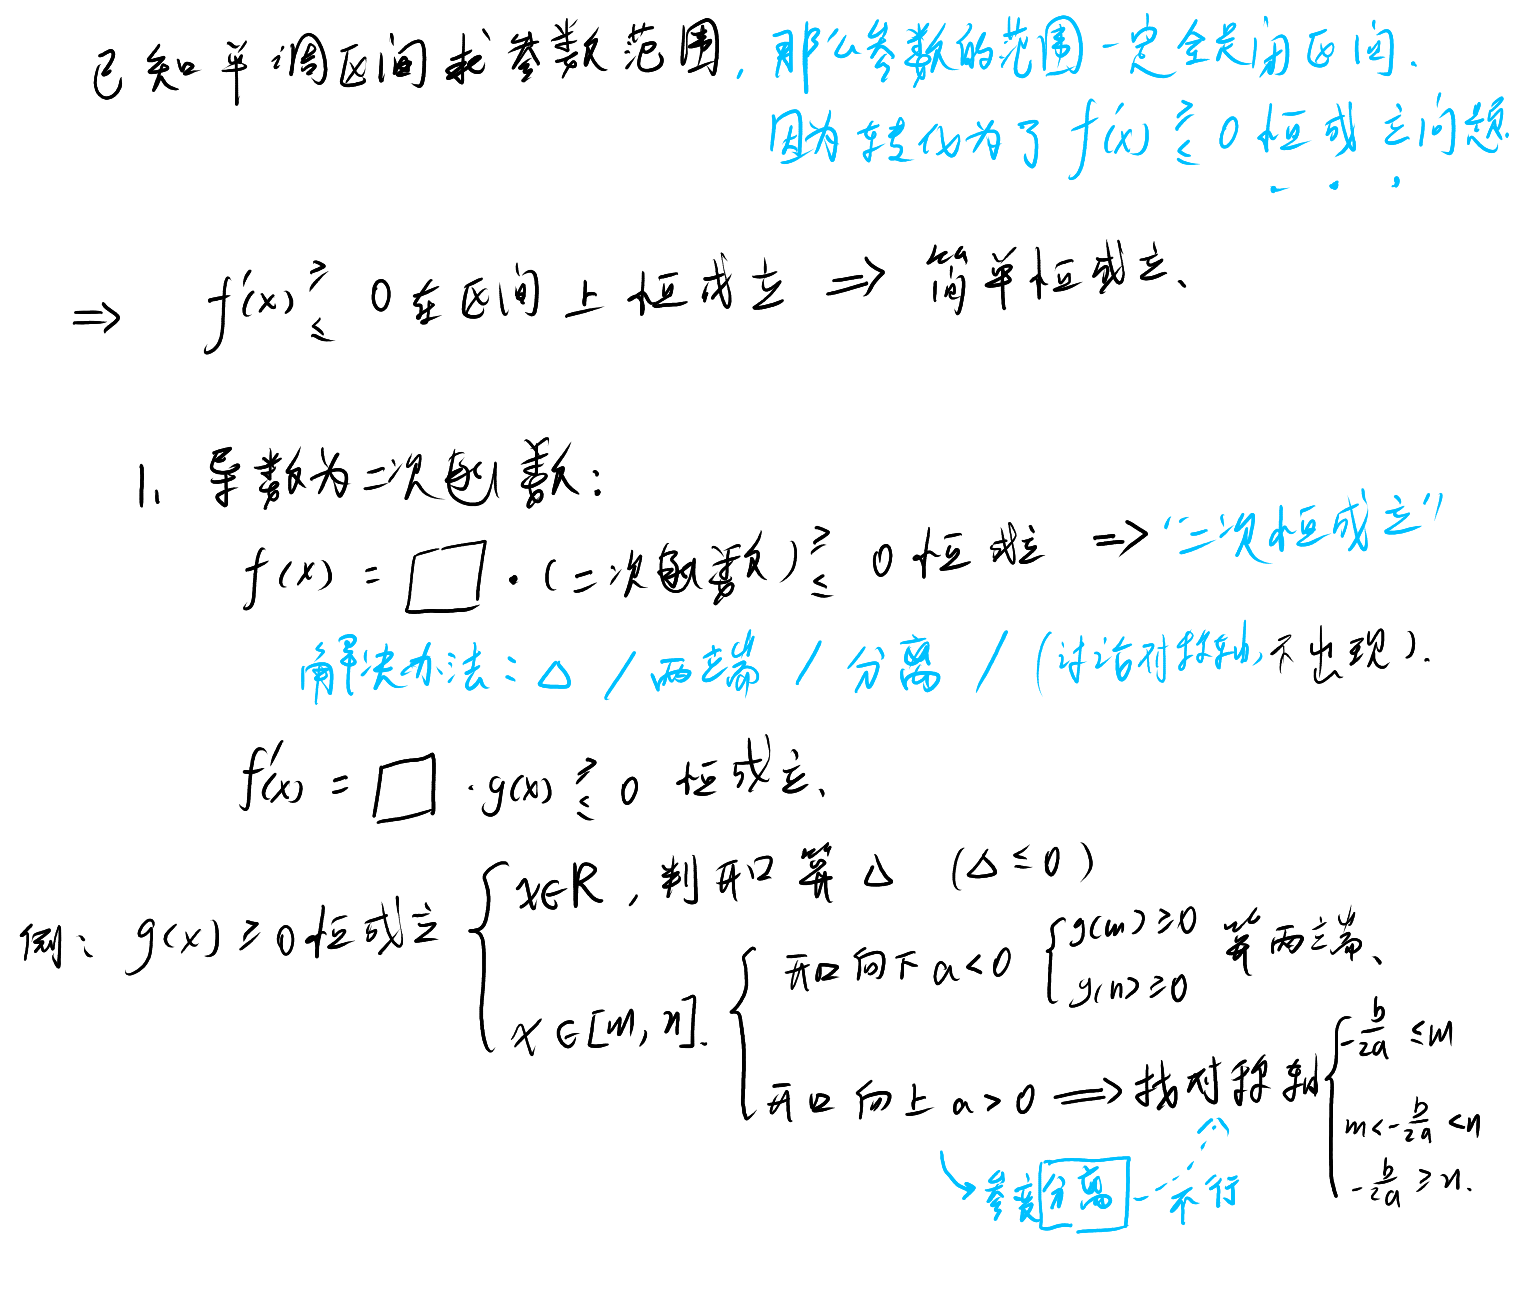 已知单调区间求参数范围, 那么参数的范围一定全是闭区间.
因为转化为了 f'(x) ≥≤ 0 恒成立问题
⇒ f'(x) ≥≤ 0 在区间上恒成立 ⇒ 简单恒成立、
1、导数为二次函数:
f(x) = □ · (二次函数) ≥≤ 0 恒成立 ⇒ "二次恒成立"
解决办法: Δ / 两端 / 分离 / (讨论对称轴, 不出现).
f'(x) = □ · g(x) ≥≤ 0 恒成立、
例: g(x) ≥ 0 恒成立 { x∈R , 判开口 算 Δ (Δ ≤ 0)
x ∈ [m, n]. { 开口向下 a < 0 { g(m) ≥ 0 g(n) ≥ 0 算两端、
开口向上 a > 0 ⇒ 找对称轴 { -b/2a ≤ m
m < -b/2a < n
-b/2a ≥ n.
↘ 参变分离 --不行